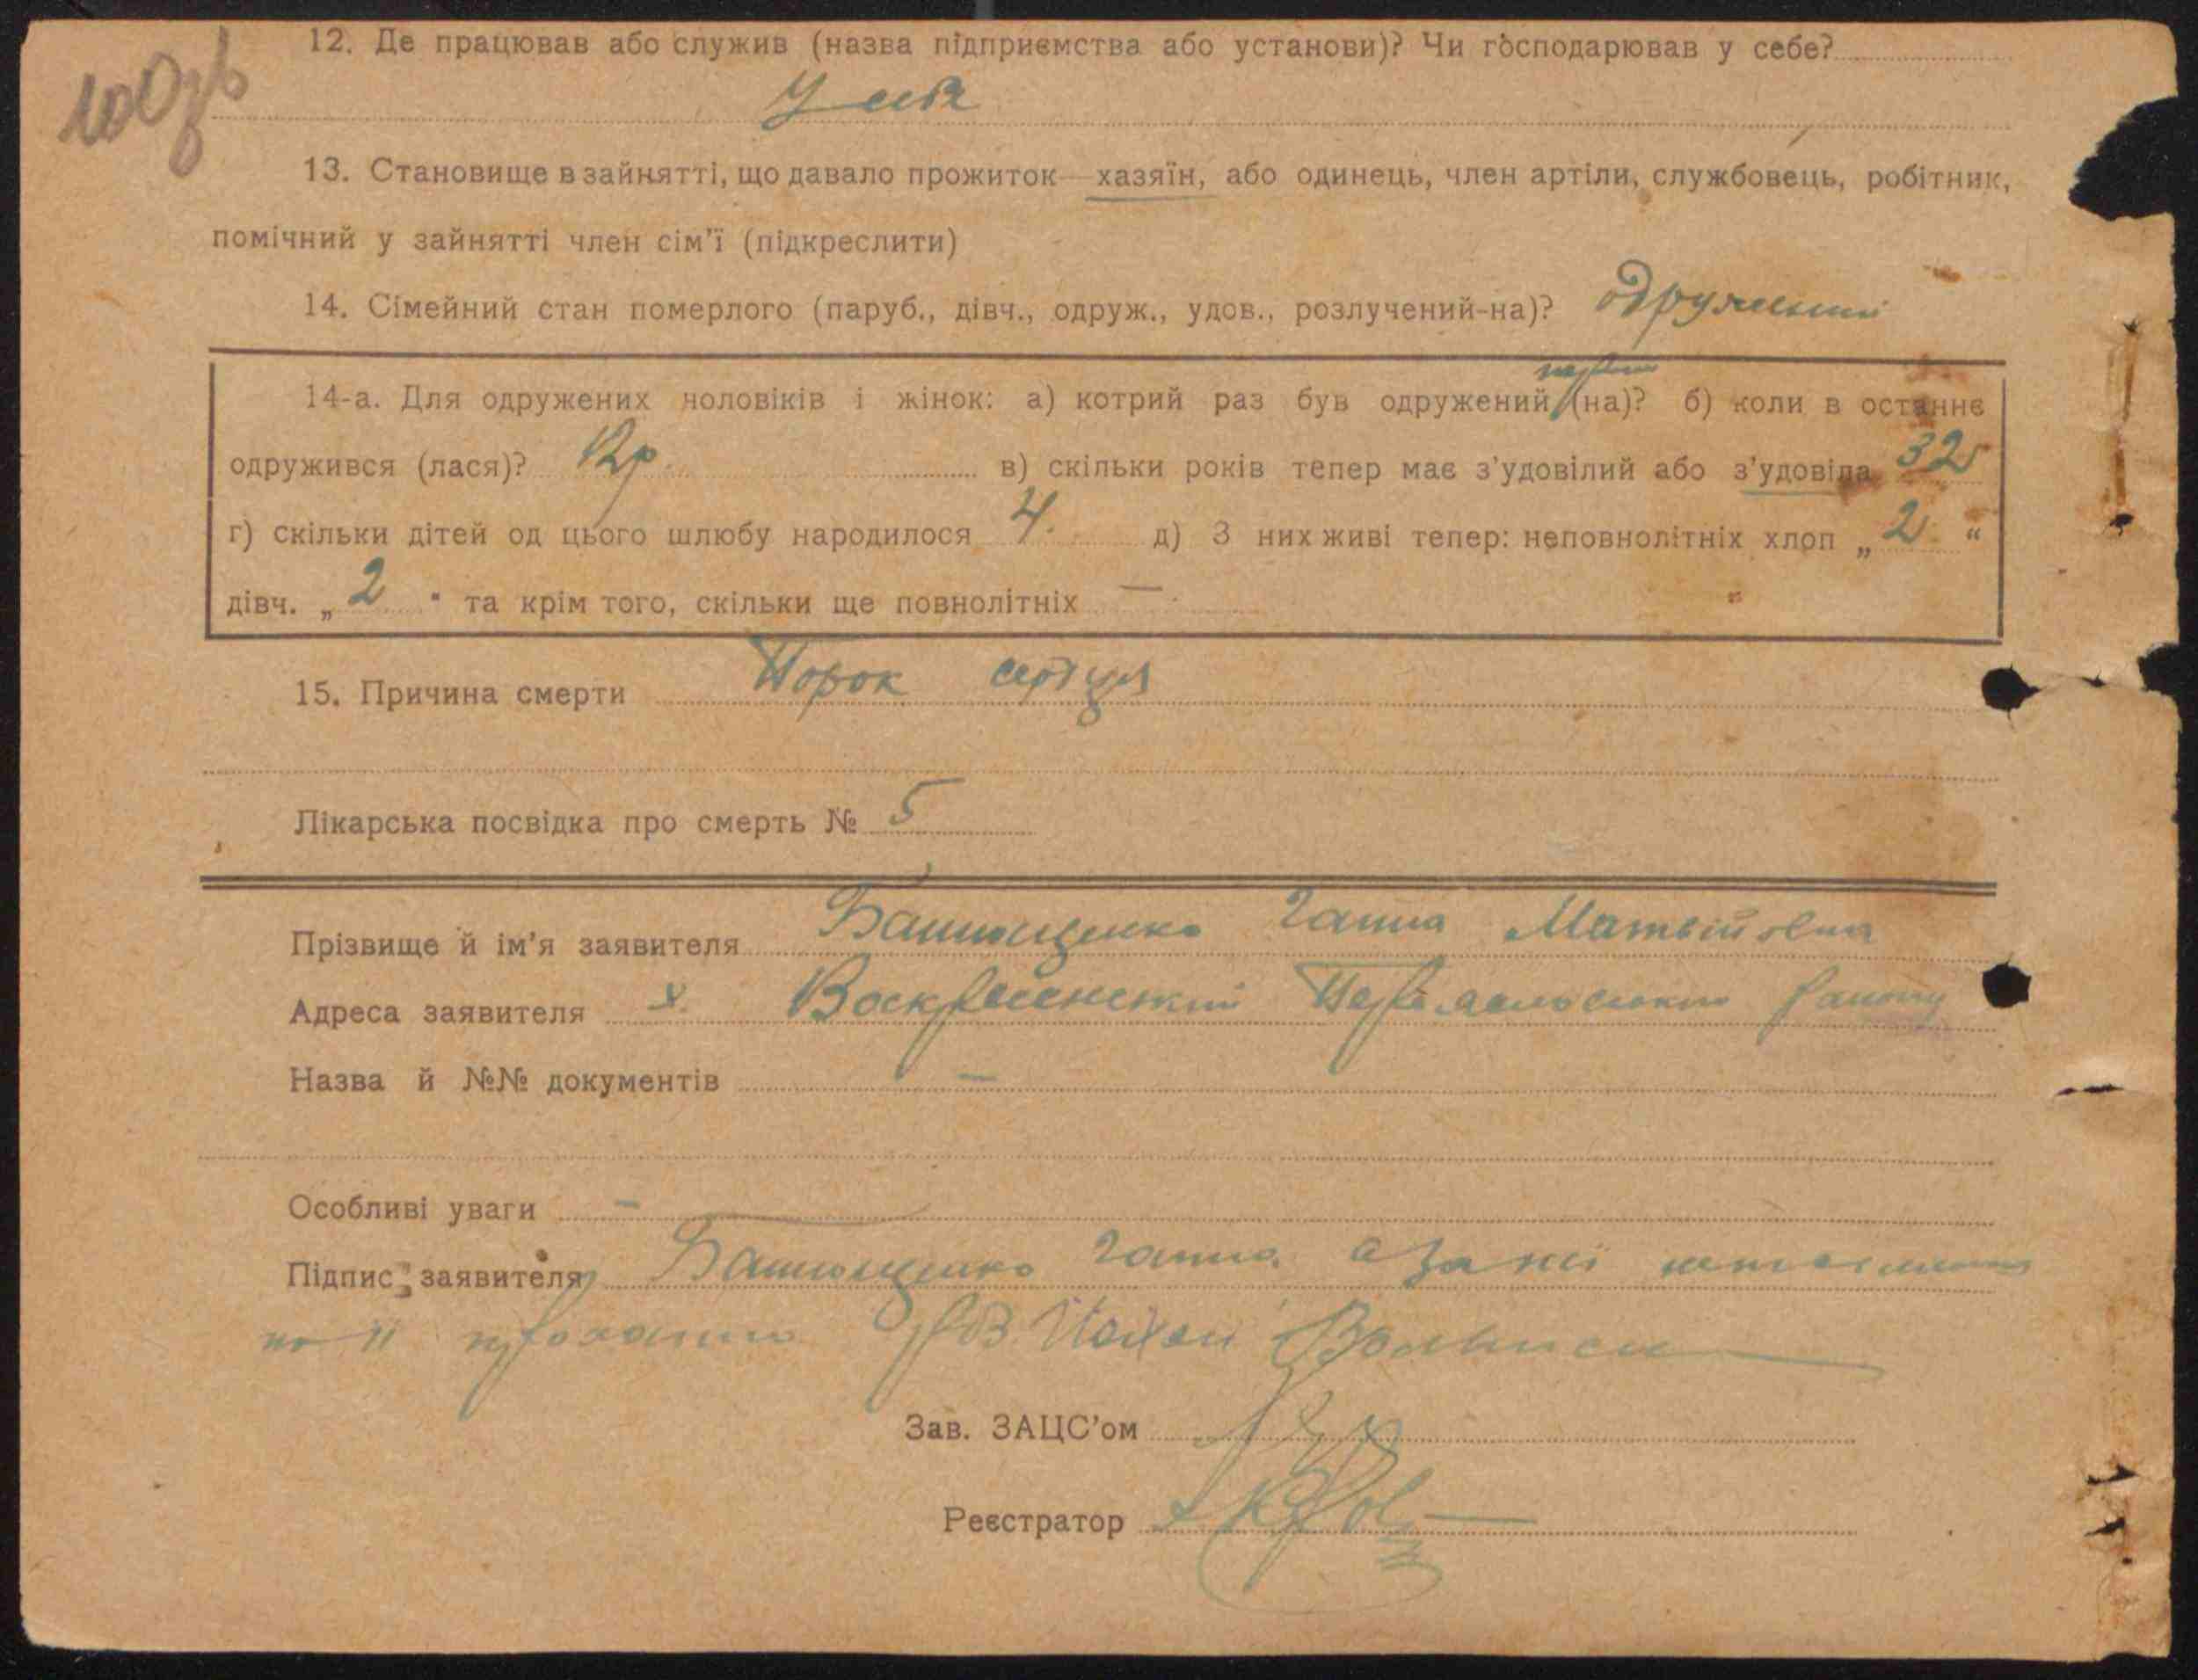 100зв
12. Де працював або служив (назва підприємства або установи)? Чи господарював у себе?
У себе
13. Становище в зайнятті, що давало прожиток—хазяїн, або одинець, член артіли, службовець, робітник,
помічний у зайнятті член сім'ї (підкреслити)
14. Сімейний стан померлого (паруб., дівч., одруж., удов., розлучений-на)? одружений
перший
14-а. Для одружених чоловіків і жінок: а) котрий раз був одружений (на)? б) коли в останнє
одружився (лася)? 12р. в) скільки років тепер має з'удовілий або з'удовіла 32
г) скільки дітей од цього шлюбу народилося 4. д) З них живі тепер: неповнолітніх хлоп „ 2 “
дівч. „ 2 " та крім того, скільки ще повнолітніх —
15. Причина смерти Порок сердця
Лікарська посвідка про смерть № 5
Прізвище й ім'я заявителя Ганна Матвійовна
Адреса заявителя х. Воскресенский району
Назва й №№ документів —
Особливі уваги —
Підпис заявителя Ганна а за неї неписьменну
по її проханню
Зав. ЗАЦС'ом
Реєстратор